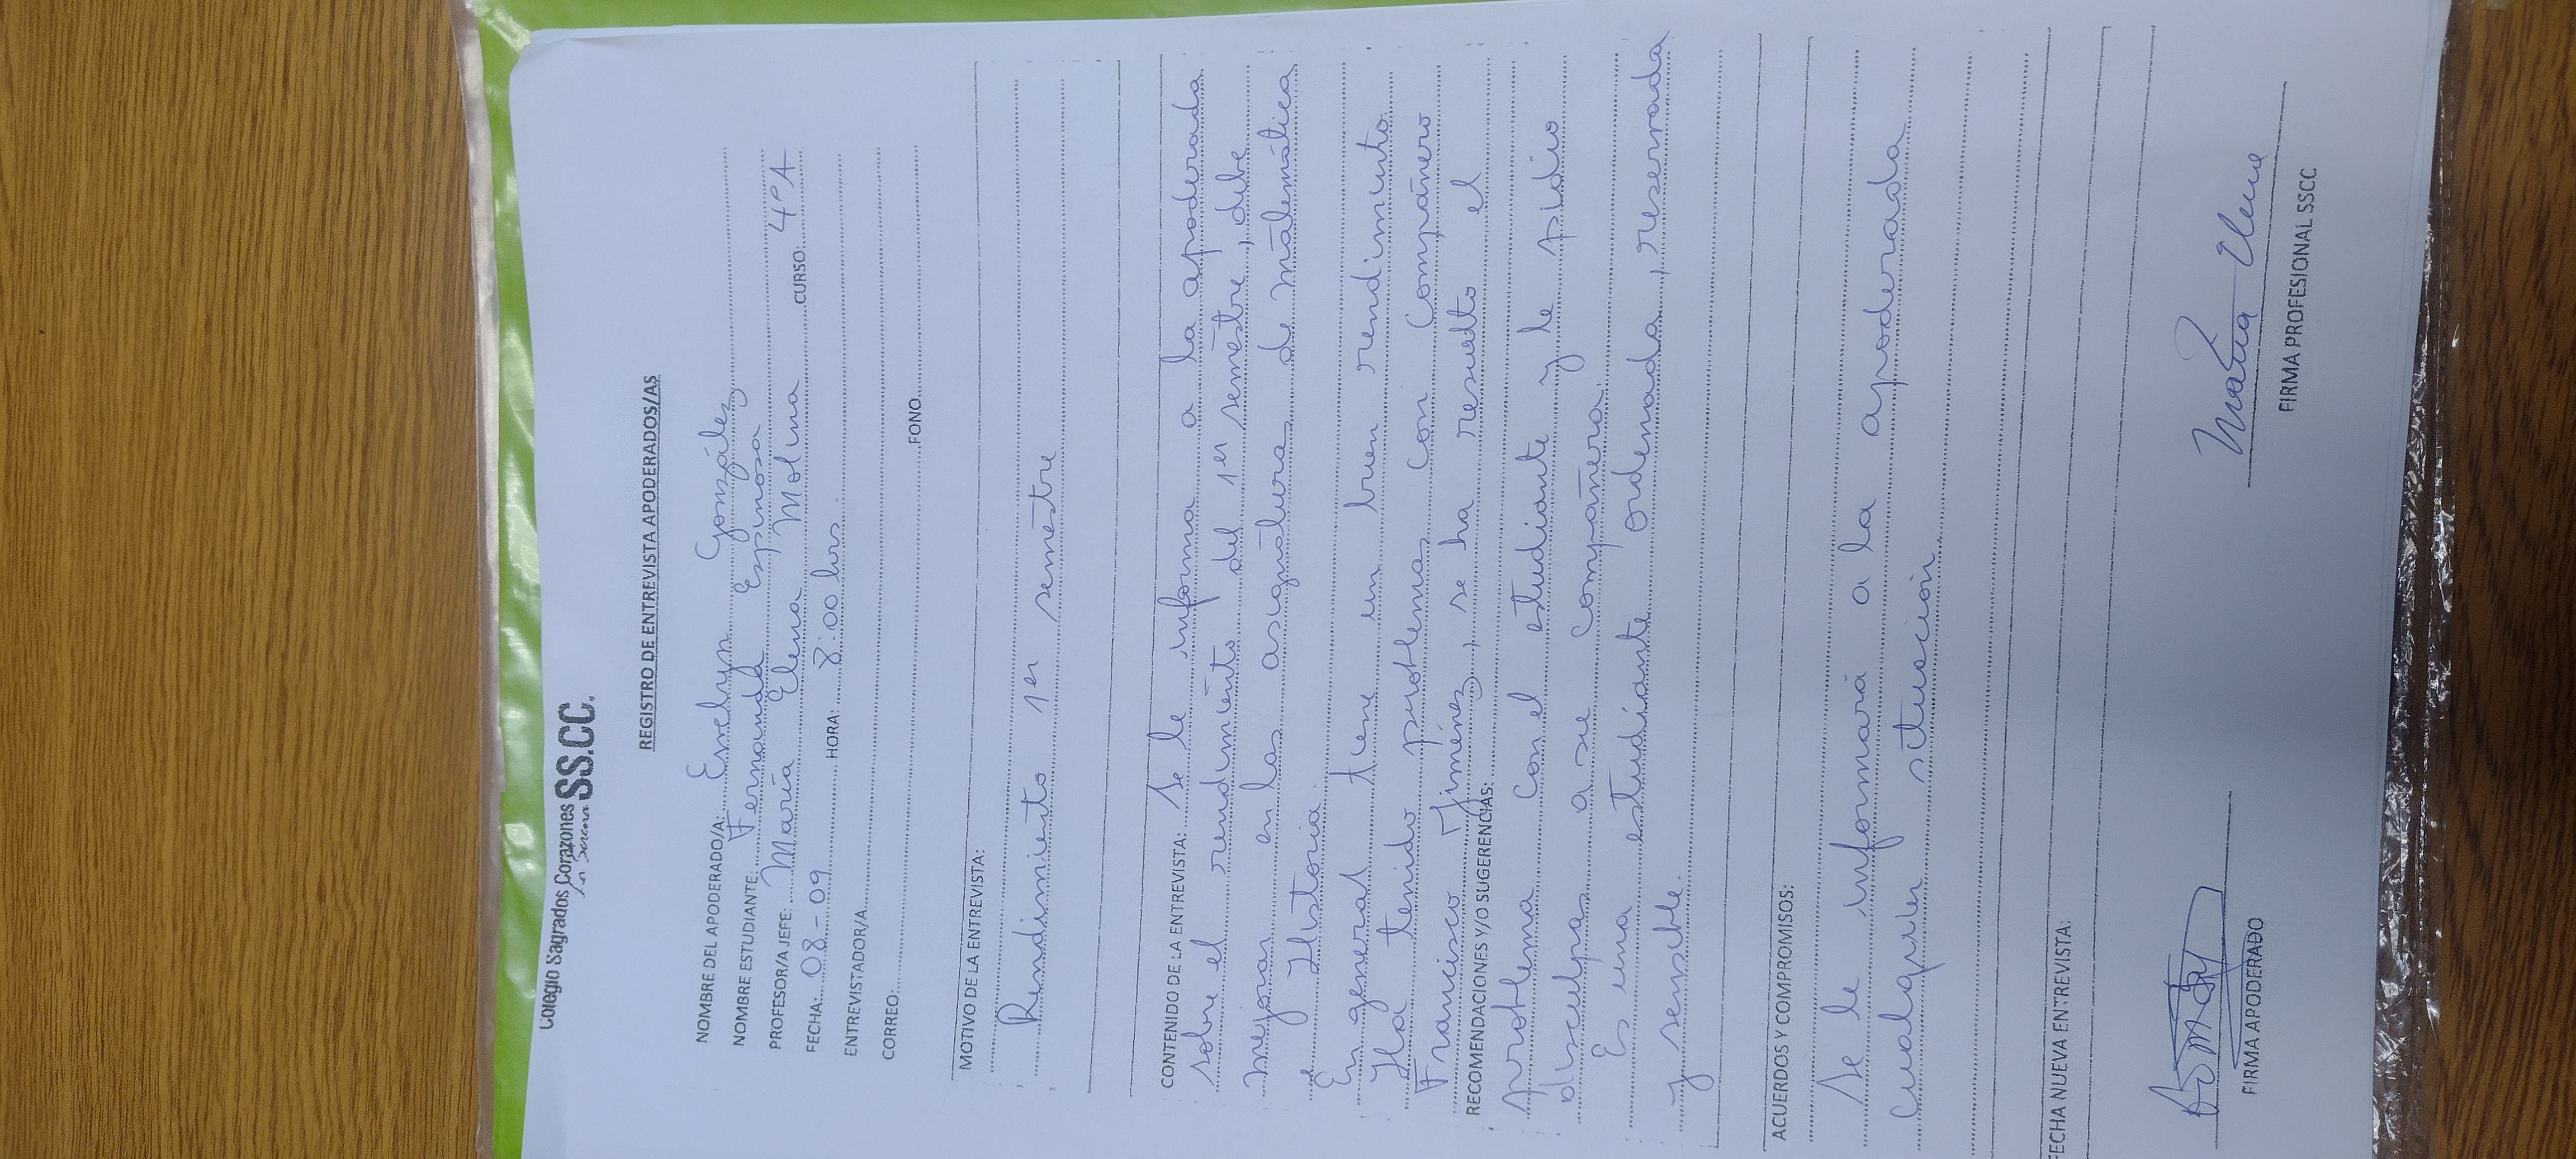 Colegio Sagrados Corazones
La Serena SS.CC.
REGISTRO DE ENTREVISTA APODERADOS/AS
NOMBRE DEL APODERADO/A: Emelyn González
NOMBRE ESTUDIANTE: Fernanda Espinosa
PROFESOR/A JEFE: María Elena Molina CURSO: 4ºA
FECHA: 08-09 HORA: 8:00 hrs.
ENTREVISTADOR/A
CORREO: FONO
MOTIVO DE LA ENTREVISTA:
Rendimiento 1er semestre
CONTENIDO DE LA ENTREVISTA: Se le informa a la apoderada
sobre el rendimiento del 1er semestre, debe
mejorar en las asignaturas de matemática
e Historia.
En general tiene un buen rendimiento.
Ha tenido problemas con compañero
Francisco Jiménez, se ha resuelto el
RECOMENDACIONES Y/O SUGERENCIAS:
problema con el estudiante y le pidio
disculpas a su compañera.
Es una estudiante ordenada, reservada
y sensible.
ACUERDOS Y COMPROMISOS:
Se le informará a la apoderada
cualquier situación.
FECHA NUEVA ENTREVISTA:
María Elena
FIRMA APODERADO FIRMA PROFESIONAL SSCC